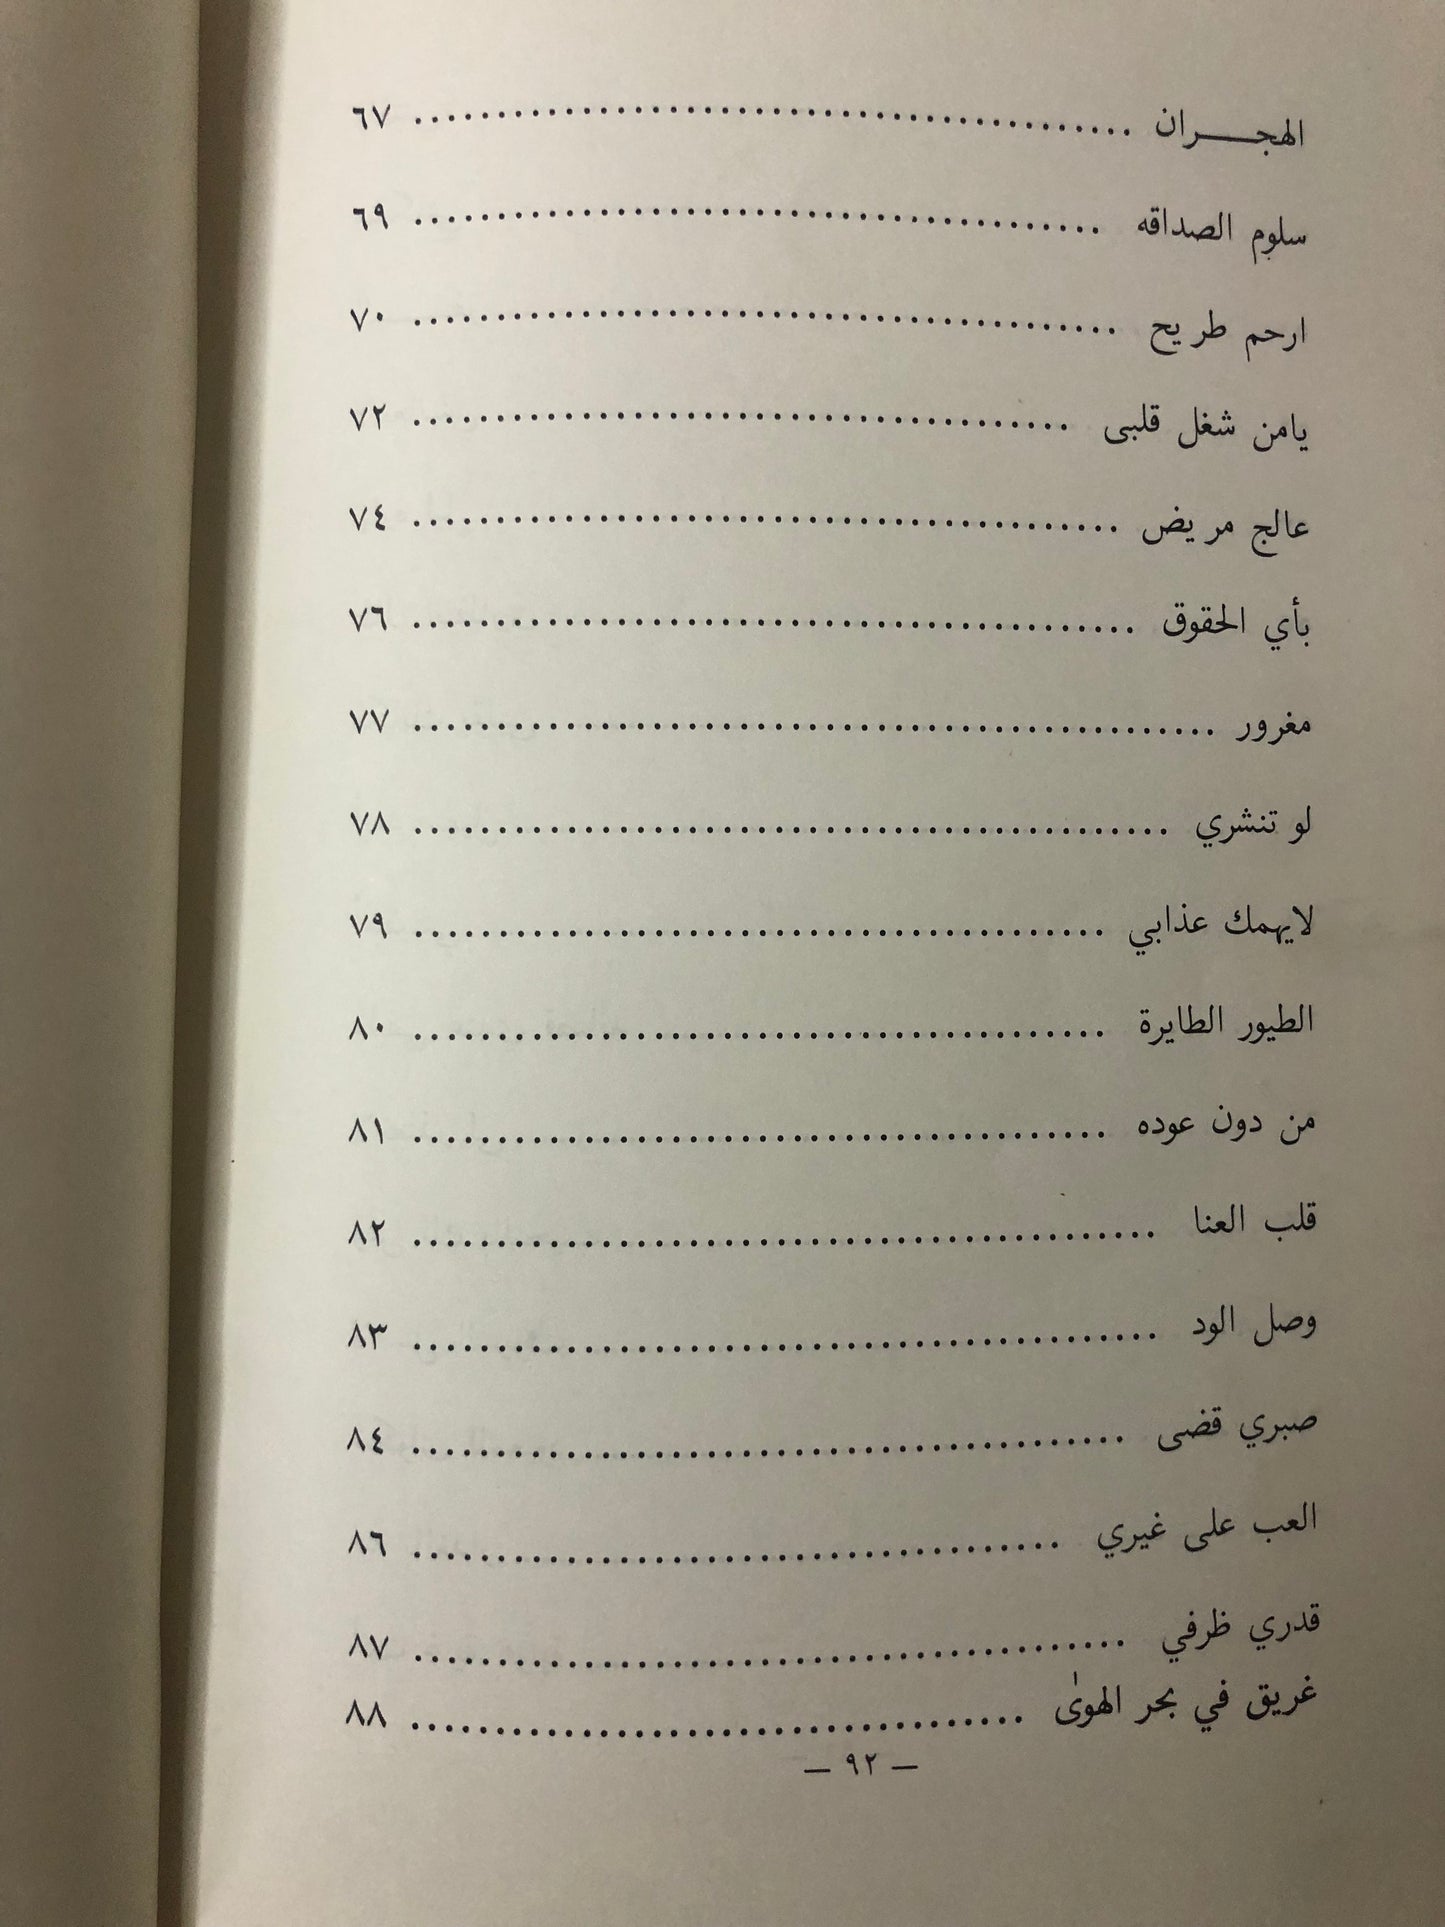 الهجـــران .......................................... ٦٧
سلوم الصداقه ........................................ ٦٩
ارحم طريح ......................................... ٧٠
يامن شغل قلبى ...................................... ٧٢
عالج مريض ......................................... ٧٤
بأي الحقوق .......................................... ٧٦
مغرور ............................................... ٧٧
لو تنشري ............................................ ٧٨
لايهمك عذابي ........................................ ٧٩
الطيور الطايرة ........................................ ٨٠
من دون عوده ........................................ ٨١
قلب العنا ........................................... ٨٢
وصل الود ........................................... ٨٣
صبري قضى ......................................... ٨٤
العب على غيري ..................................... ٨٦
قدري ظرفي ......................................... ٨٧
غريق في بحر الهوىٰ ................................... ٨٨
— ٩٢ —